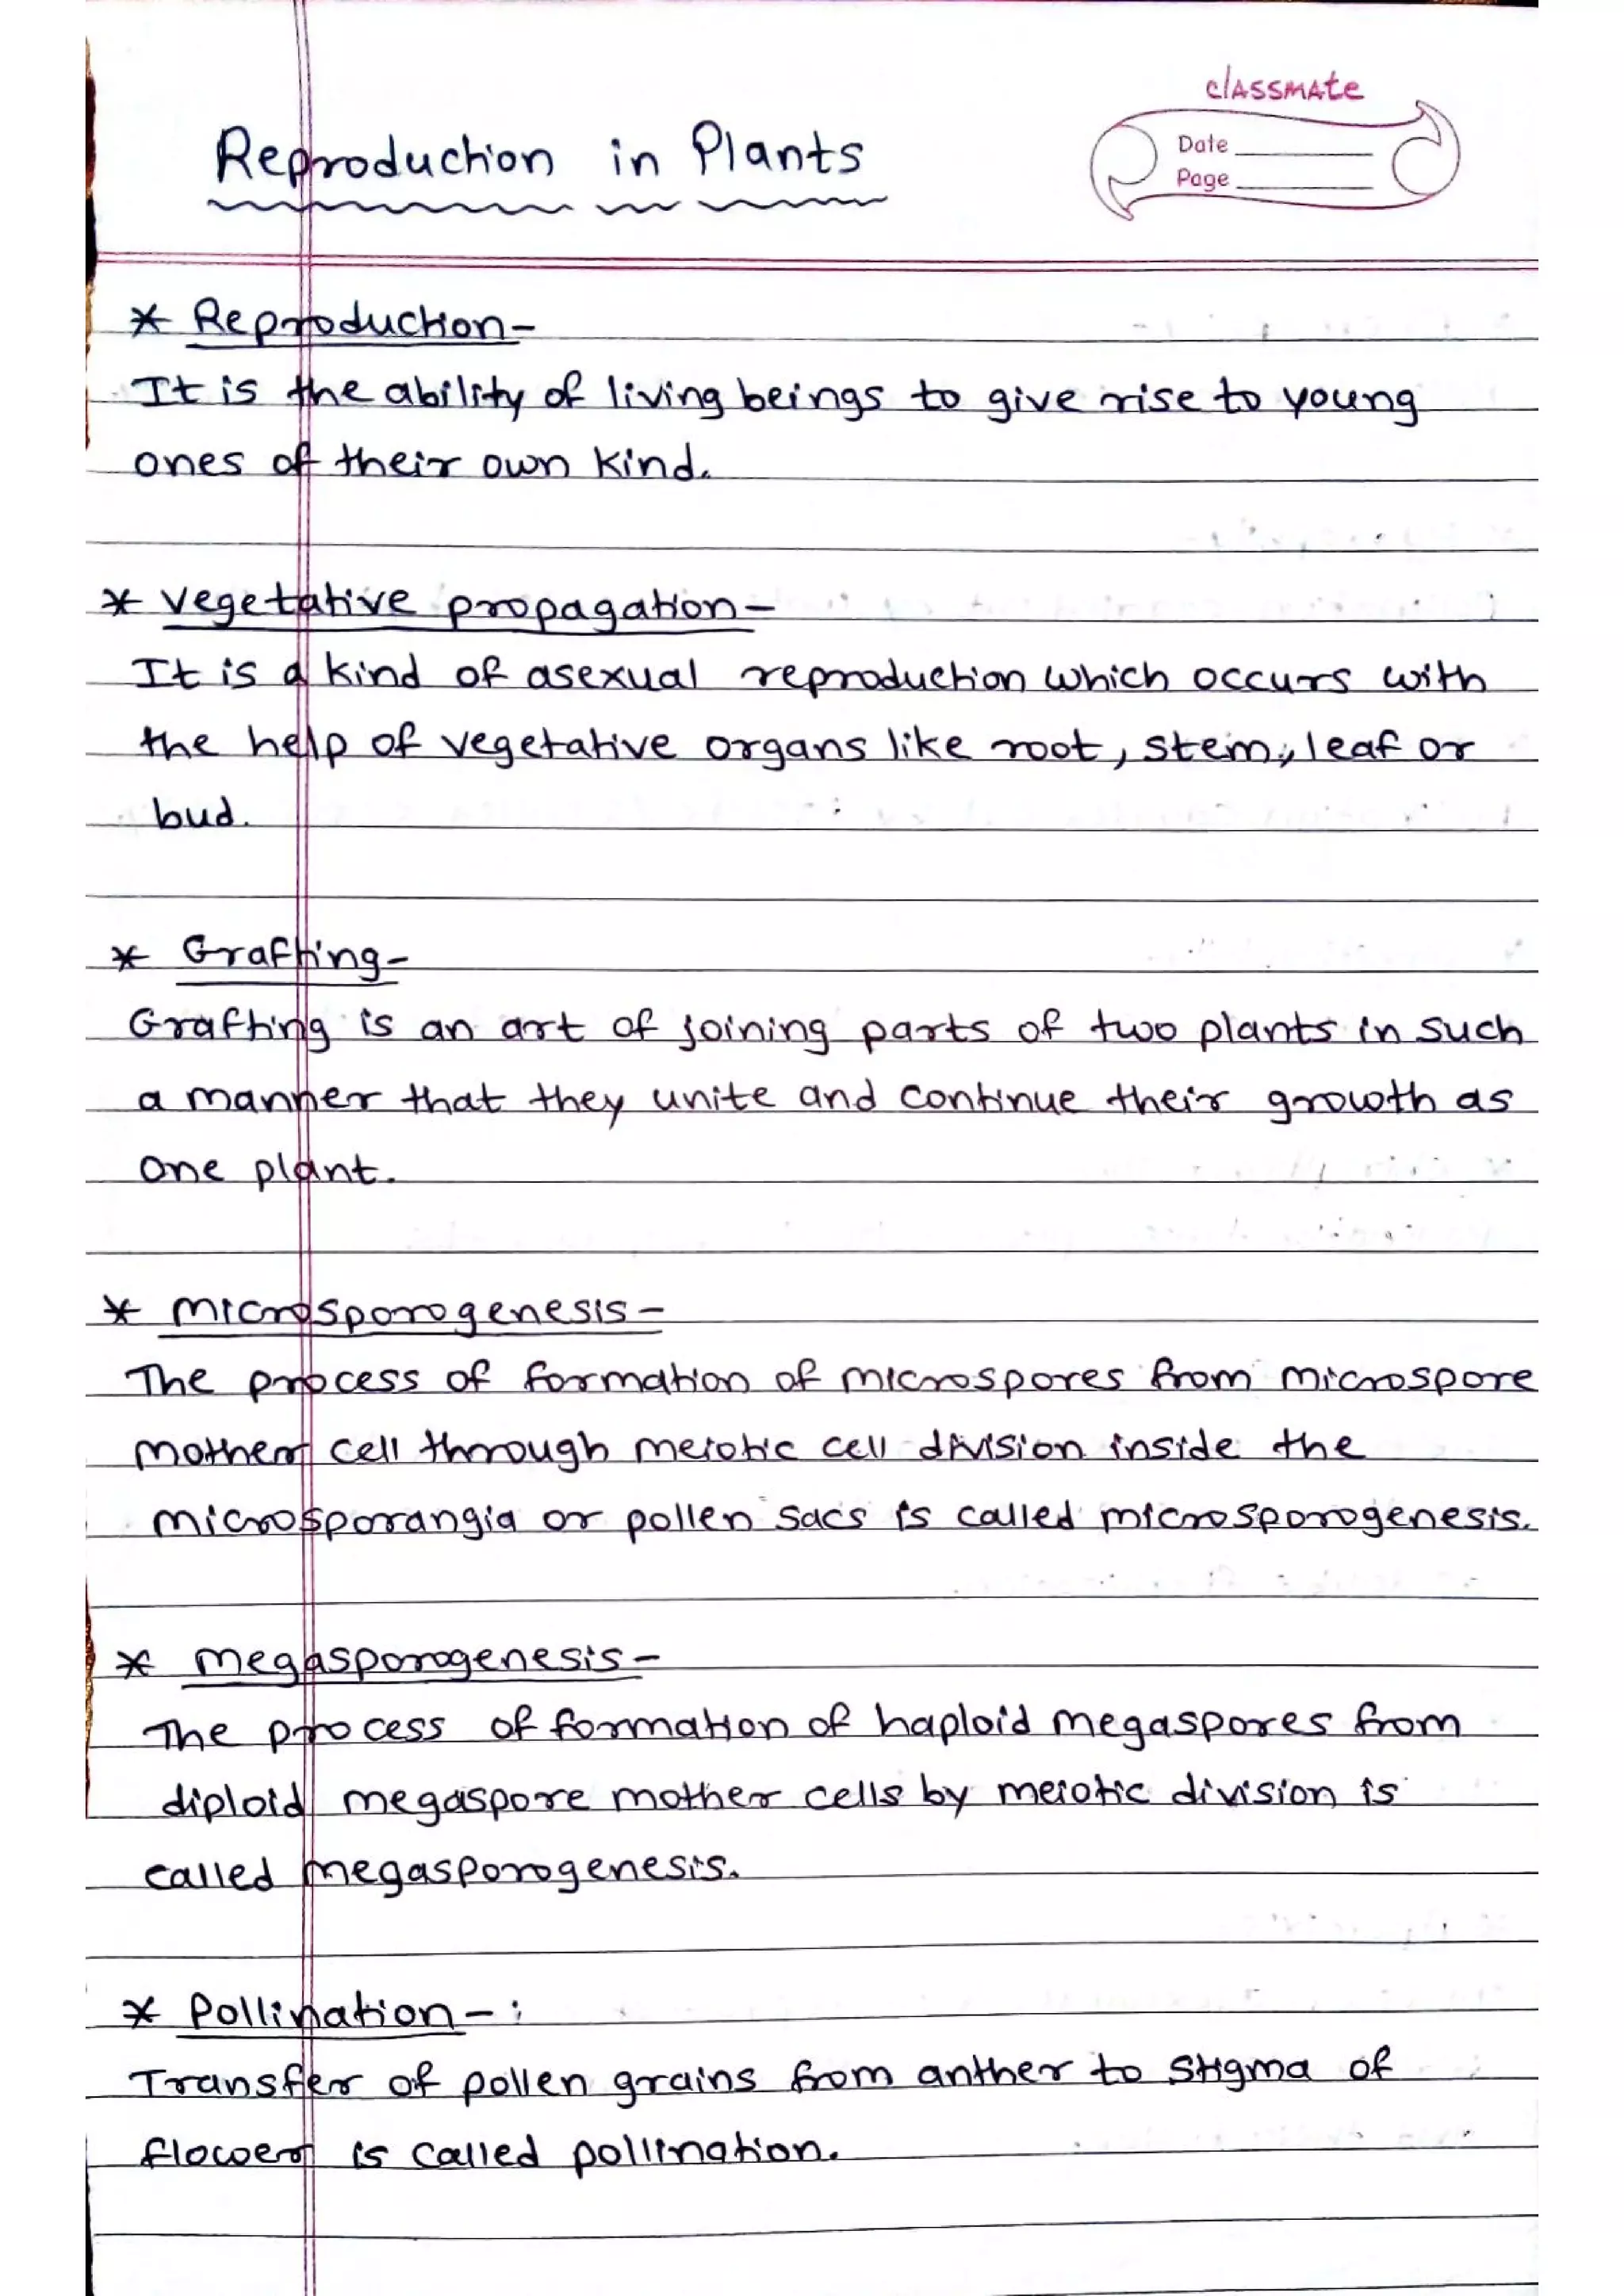 classmate
Date
Page
Reproduction in Plants
* Reproduction-
It is the ability of living beings to give rise to young
ones of their own kind.
* Vegetative propagation-
It is a kind of asexual reproduction which occurs with
the help of vegetative organs like root, stem, leaf or
bud.
* Grafting-
Grafting is an art of joining parts of two plants in such
a manner that they unite and continue their growth as
one plant.
* Microsporogenesis-
The process of formation of microspores from microspore
mother cell through meiotic cell division inside the
microsporangia or pollen sacs is called microsporogenesis.
* Megasporogenesis-
The process of formation of haploid megaspores from
diploid megaspore mother cells by meiotic division is
called megasporogenesis.
* Pollination-:
Transfer of pollen grains from anther to stigma of
flower is called pollination.